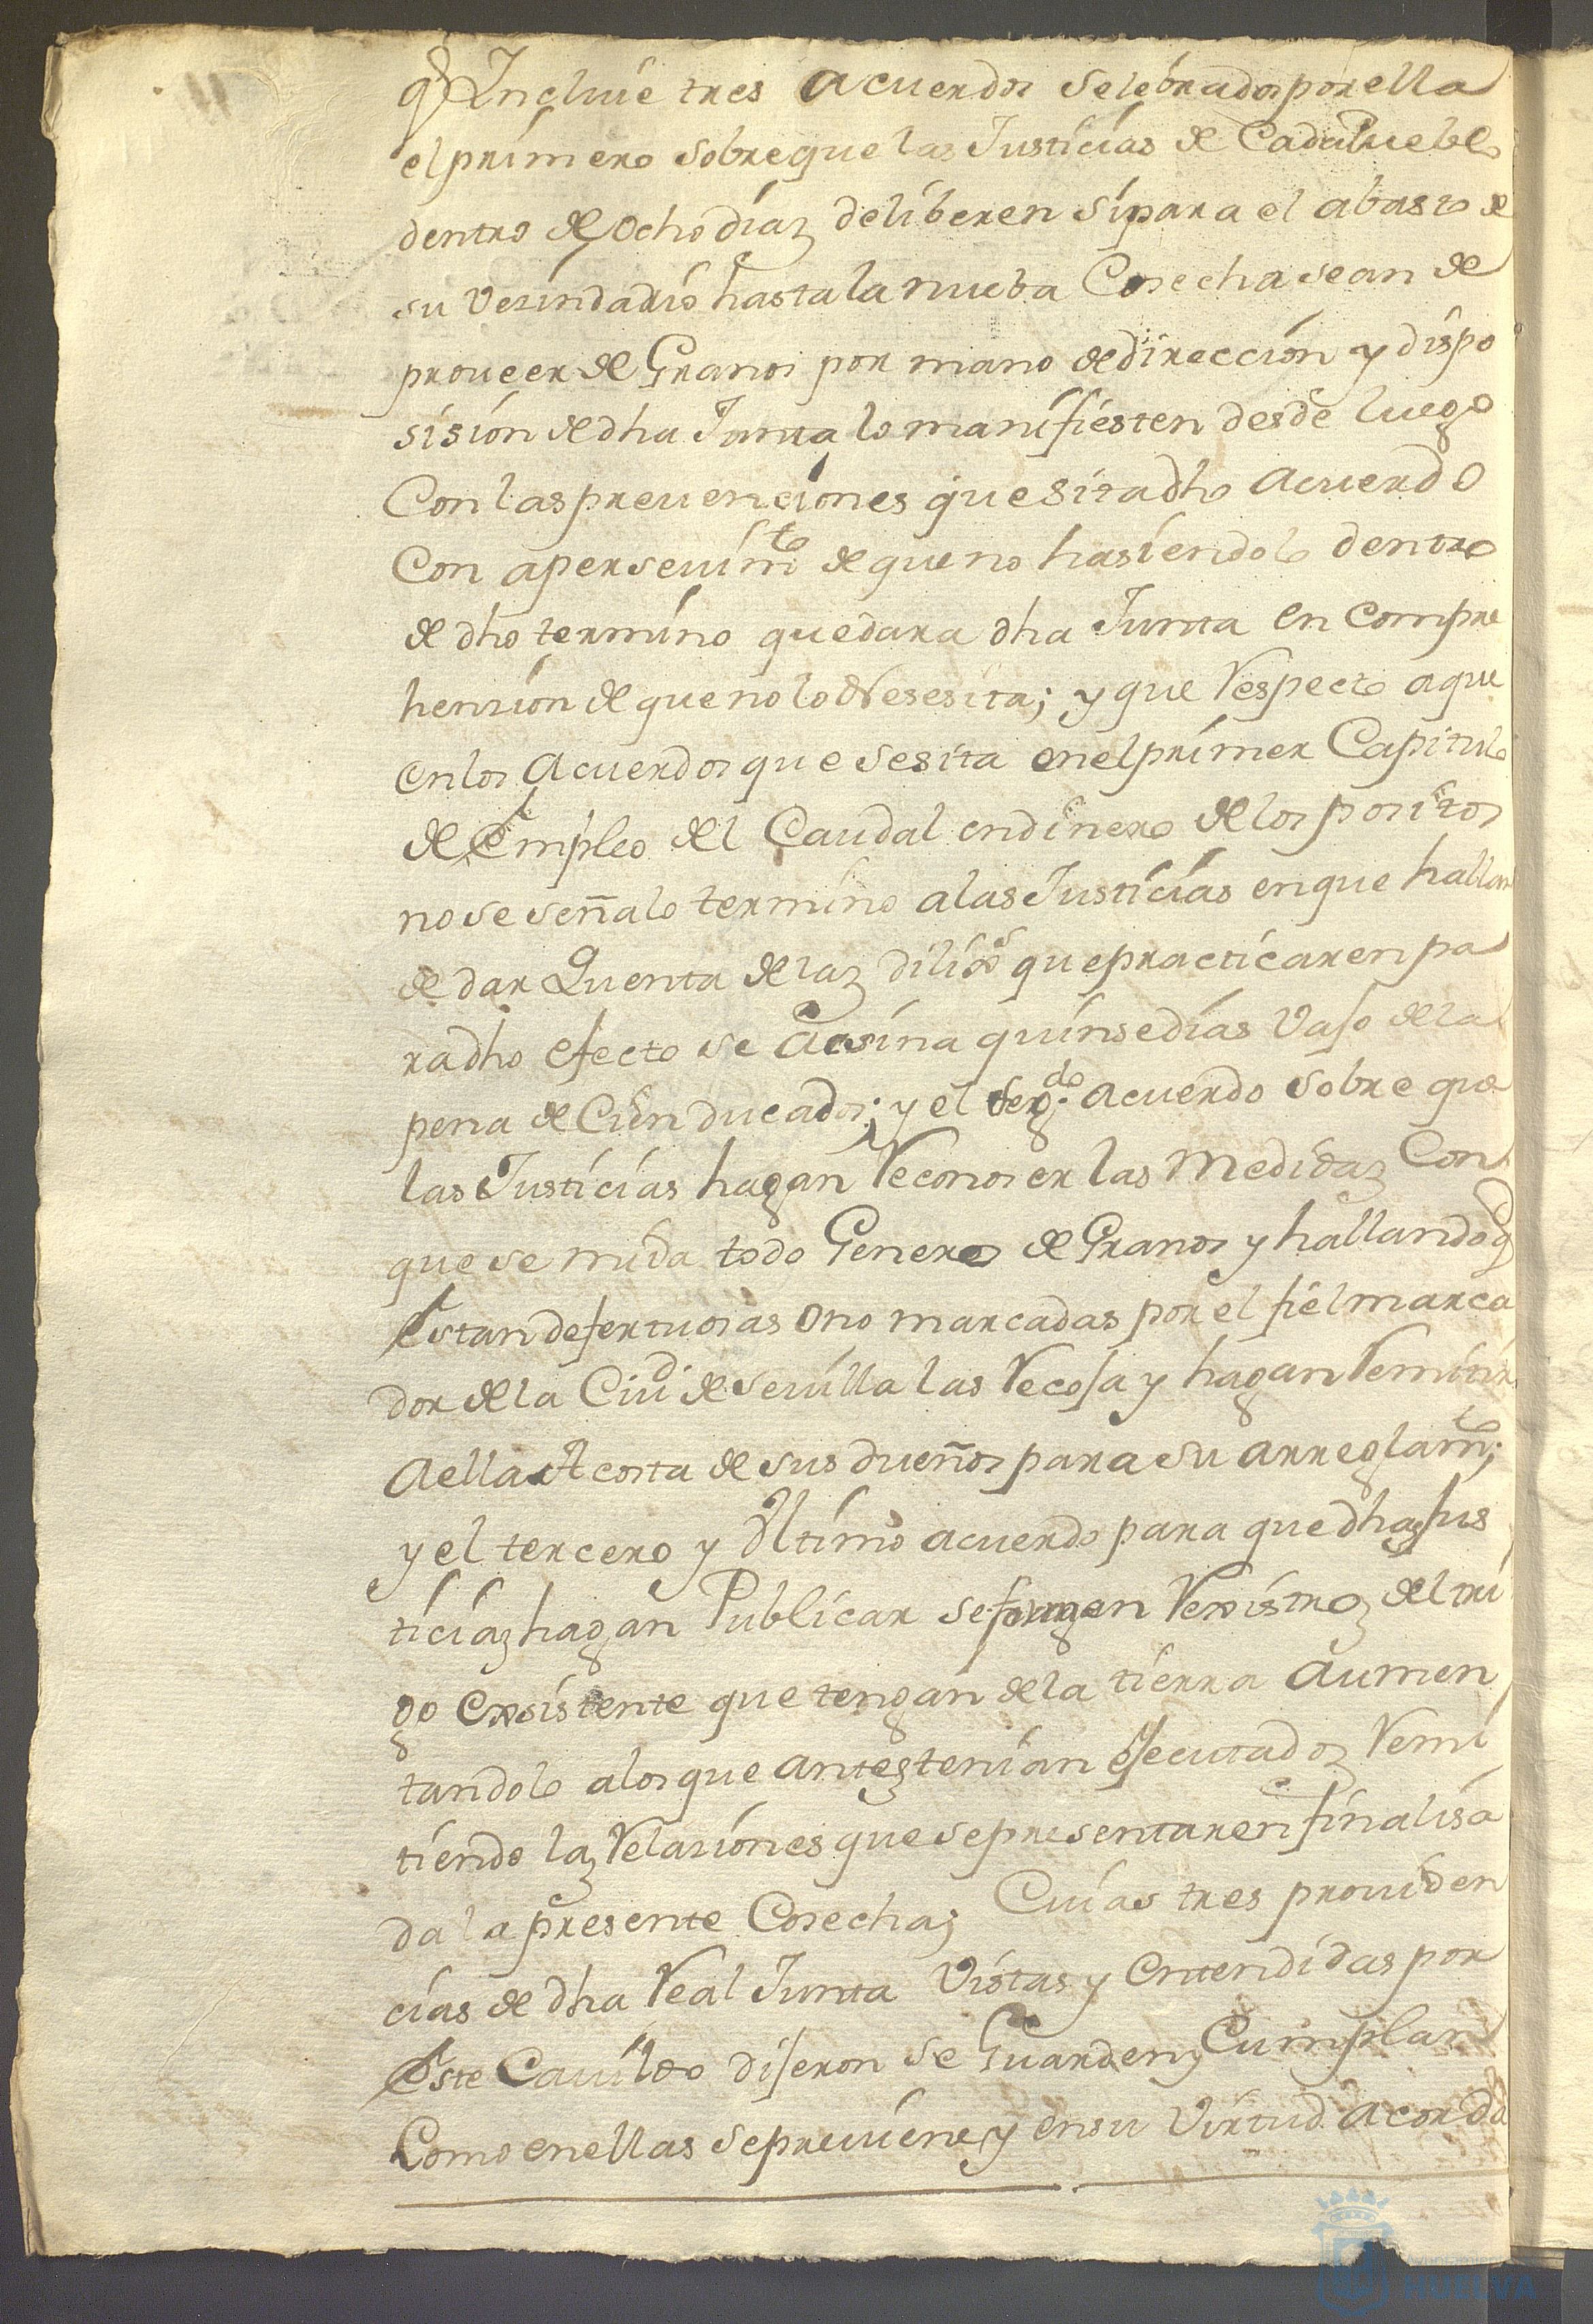 q̃ Incluie tres acuerdos selebrados por ella
el primero sobre que las Justicias de Cada Pueblo
dentro de Ocho diaz deliberen si para el abasto de
su Vesindario hasta la nueba Cosecha se an de
proueer de Granos por mano de dirección y dispo
sisión de dha Junta lo manifiesten desde luego
Con las preuenciones que sita dho acuerdo
Con aperseuimto de que no hasiendolo dentro
de dho termino quedara dha Junta en compre
hension de que no lo Nesesita; y que Respecto a que
en los Acuerdos que se sita en el primer Capitulo
de Empleo del Caudal en dinero de los positos
no se señalo termino a las Justicias en que hallan
de dar Quenta de laz diligs que practicaren pa
ra dho efecto se Asina quinse dias Vajo de la
pena de Cien ducados; y el segdo acuerdo sobre que
las Justicias hagan Reconoser las Medidaz Con
que se mida todo Genero de Granos y hallando q̃
Estan defectuosas o no marcadas por el fiel marca
dor de la Ciud de Seuilla las Recoja y hagan Remitir
a ella A costa de sus dueños para su arreglamto;
y el tercero y Ultimo acuerdo para que dhaz Jus
ticiaz hagan Publicar se formen Rexistroz del tri
go exsistente que tengan de la tierra aumen
tandolo a los que antez tenian ejecutadoz Remi
tiendo laz Relasiones que se presentaren finalisa
da la presente Cosecha; Cuias tres prouiden
cias de dha Real Junta Vistas y entendidas por
Este Cauildo dijeron se Guarden y Cumplan
Como en ellas se preuiene y en su Virtud acordó
HUELVA